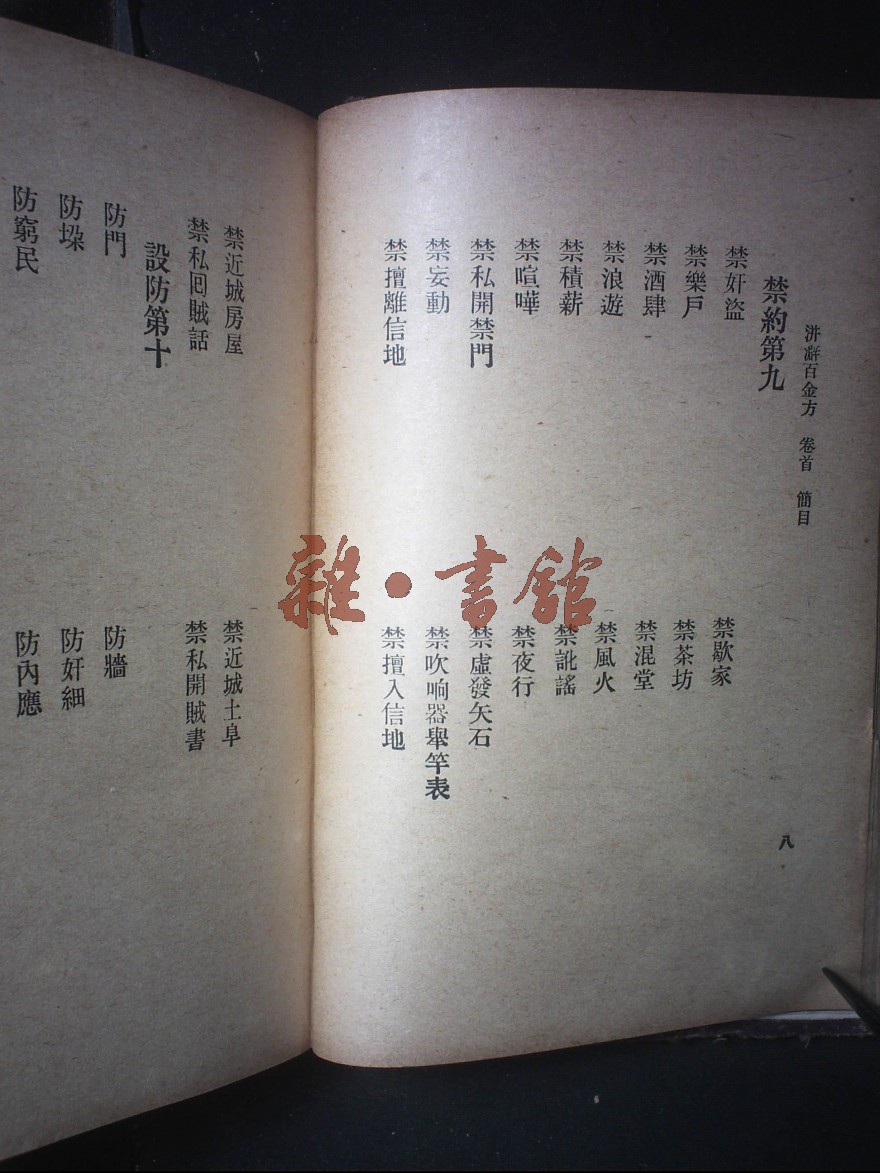 洴澼百金方　卷首　簡目
禁約第九
禁奸盜　禁歇家
禁樂戶　禁茶坊
禁酒肆　禁混堂
禁浪遊　禁風火
禁積薪　禁訛謠
禁喧嘩　禁夜行
禁私開禁門　禁虛發矢石
禁妄動　禁吹响器舉竿表
禁擅離信地　禁擅入信地
八
禁近城房屋　禁近城土阜
禁私囘賊話　禁私開賊書
設防第十
防門　防牆
防垛　防奸細
防窮民　防內應
雜·書館